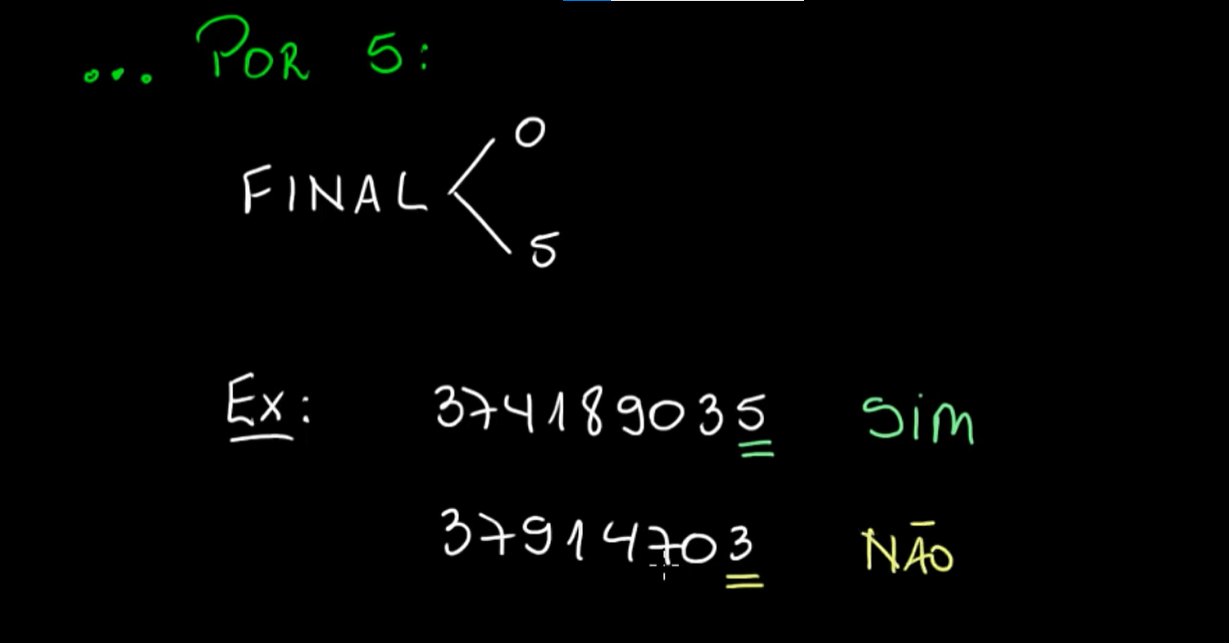 ... POR 5:
0
FINAL
5
Ex: 374189035 Sim
37914703 NÃO